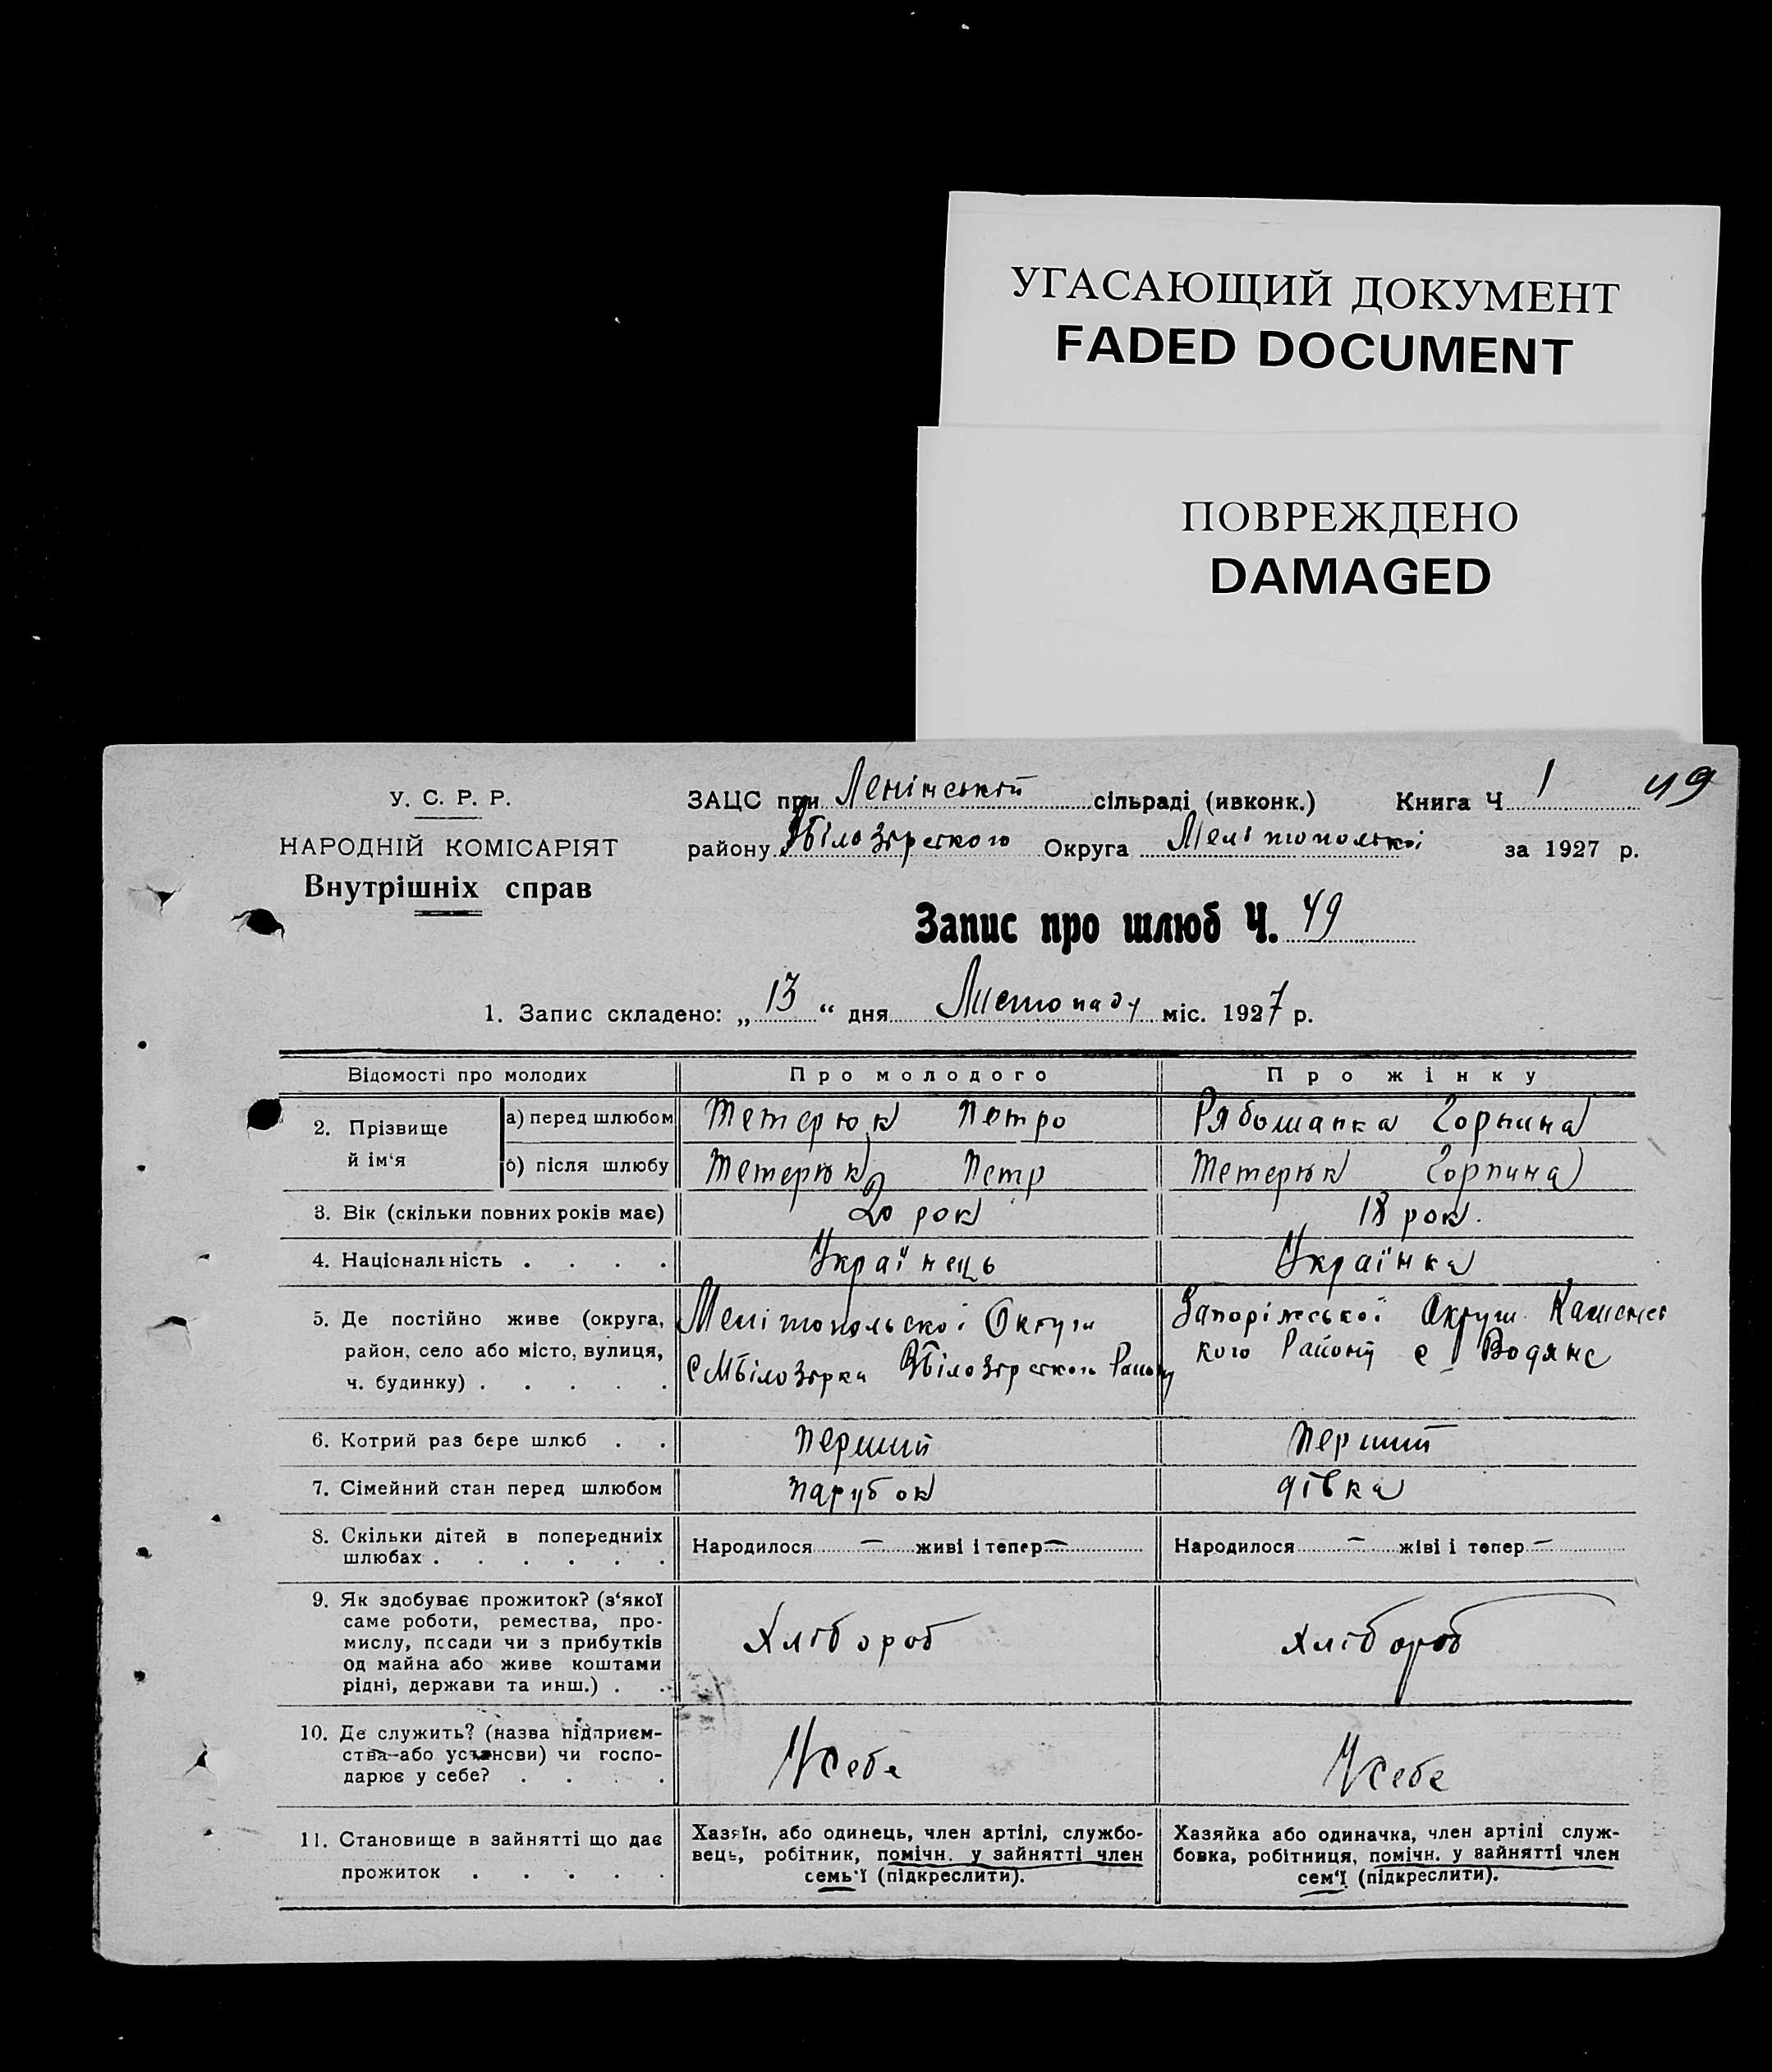 УГАСАЮЩИЙ ДОКУМЕНТ
FADED DOCUMENT
ПОВРЕЖДЕНО
DAMAGED
У. С. Р. Р.
НАРОДНІЙ КОМІСАРІЯТ
Внутрішніх справ
ЗАЦС при Ленінській сільраді (ивконк.) Книга Ч 1 49
району Вбілозірського Округа Мелітопольскої за 1927 р.
Запис про шлюб Ч. 49
1. Запис складено: „ 13 “ дня Листопаду міс. 1927 р.
Відомості про молодих Про молодого Про жінку
2. Прізвище й ім‘я
а) перед шлюбом Тетерюк Петро Рябошапка Горпина
б) після шлюбу Тетерюк Петр Тетерюк Горпина
3. Вік (скільки повних років має) 20 рок 18 рок.
4. Національність . . . . Українець Українка
5. Де постійно живе (округа, район, село або місто, вулиця, ч. будинку) . . . . .
Мелітопольскої Округи
Білозірки Вбілозірского Району
Запоріжської Округи Каменсь
кого Району с Водяне
6. Котрий раз бере шлюб . . перший перший
7. Сімейний стан перед шлюбом парубок дівка
8. Скільки дітей в попередниіх
шлюбах . . . . . . Народилося — живі і тепер — Народилося — жіві і тепер —
9. Як здобуває прожиток? (з‘якої
саме роботи, ремества, про-
мислу, посади чи з прибутків
од майна або живе коштами
рідні, держави та инш.) . .
Хлібороб Хлібороб
10. Де служить? (назва підприєм-
ства або установи) чи госпо-
дарює у себе? . . . .
У себе У себе
11. Становище в зайнятті що дає
прожиток . . . . .
Хазяїн, або одинець, член артілі, службо-
вець, робітник, помічн. у зайнятті член
семь‘ї (підкреслити).
Хазяйка або одиначка, член артілі служ-
бовка, робітниця, помічн. у зайнятті член
сем‘ї (підкреслити).